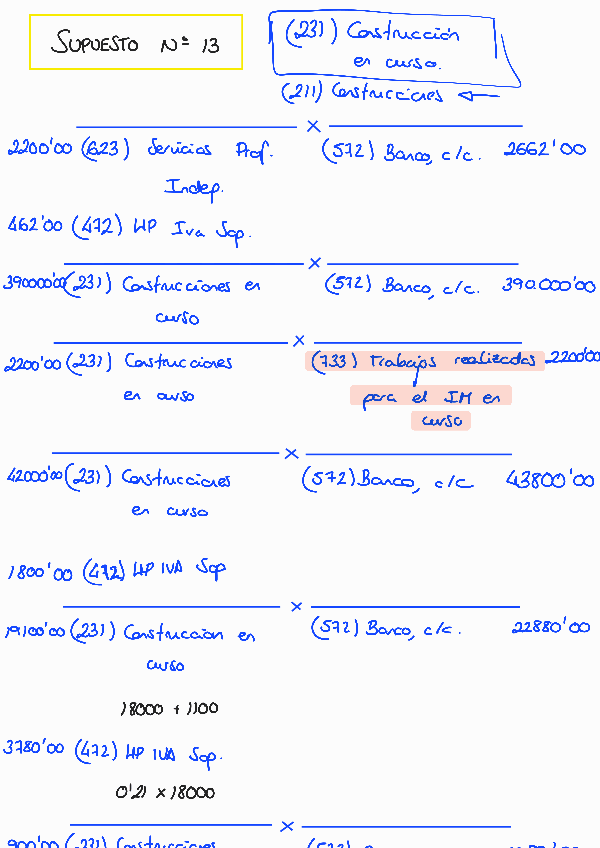 SUPUESTO Nº 13
(231) Construcción
en curso.
(211) Construcciones ←
2200'00 (623) Servicios Prof. (572) Banco, c/c. 2662'00
Indep.
462'00 (472) HP Iva Sop.
390000'00 (231) Construcciones en (572) Banco, c/c. 390.000'00
curso
2200'00 (231) Construcciones (733) Trabajos realizados 2200'00
en curso para el IM en
curso
42000'00 (231) Construcciones (572) Banco, c/c 43800'00
en curso
1800'00 (472) HP IVA Sop
19100'00 (231) Construccion en (572) Banco, c/c. 22880'00
curso
18000 + 1100
3780'00 (472) HP IVA Sop.
0'21 x 18000
900'00 (231) Construcciones (572)